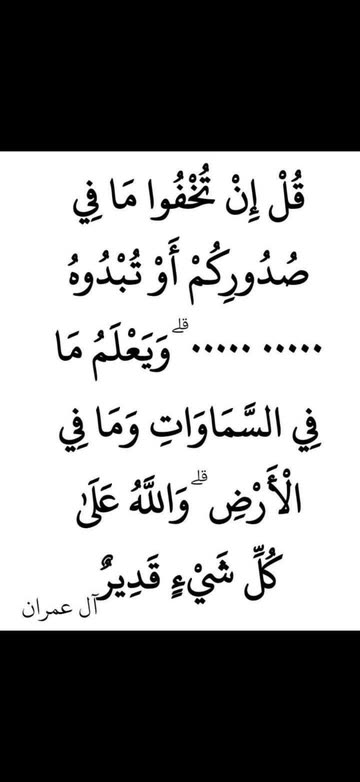 قُلْ إِنْ تُخْفُوا مَا فِي
صُدُورِكُمْ أَوْ تُبْدُوهُ
..... ..... ۗ وَيَعْلَمُ مَا
فِي السَّمَاوَاتِ وَمَا فِي
الْأَرْضِ ۗ وَاللَّهُ عَلَىٰ
كُلِّ شَيْءٍ قَدِيرٌ
آل عمران